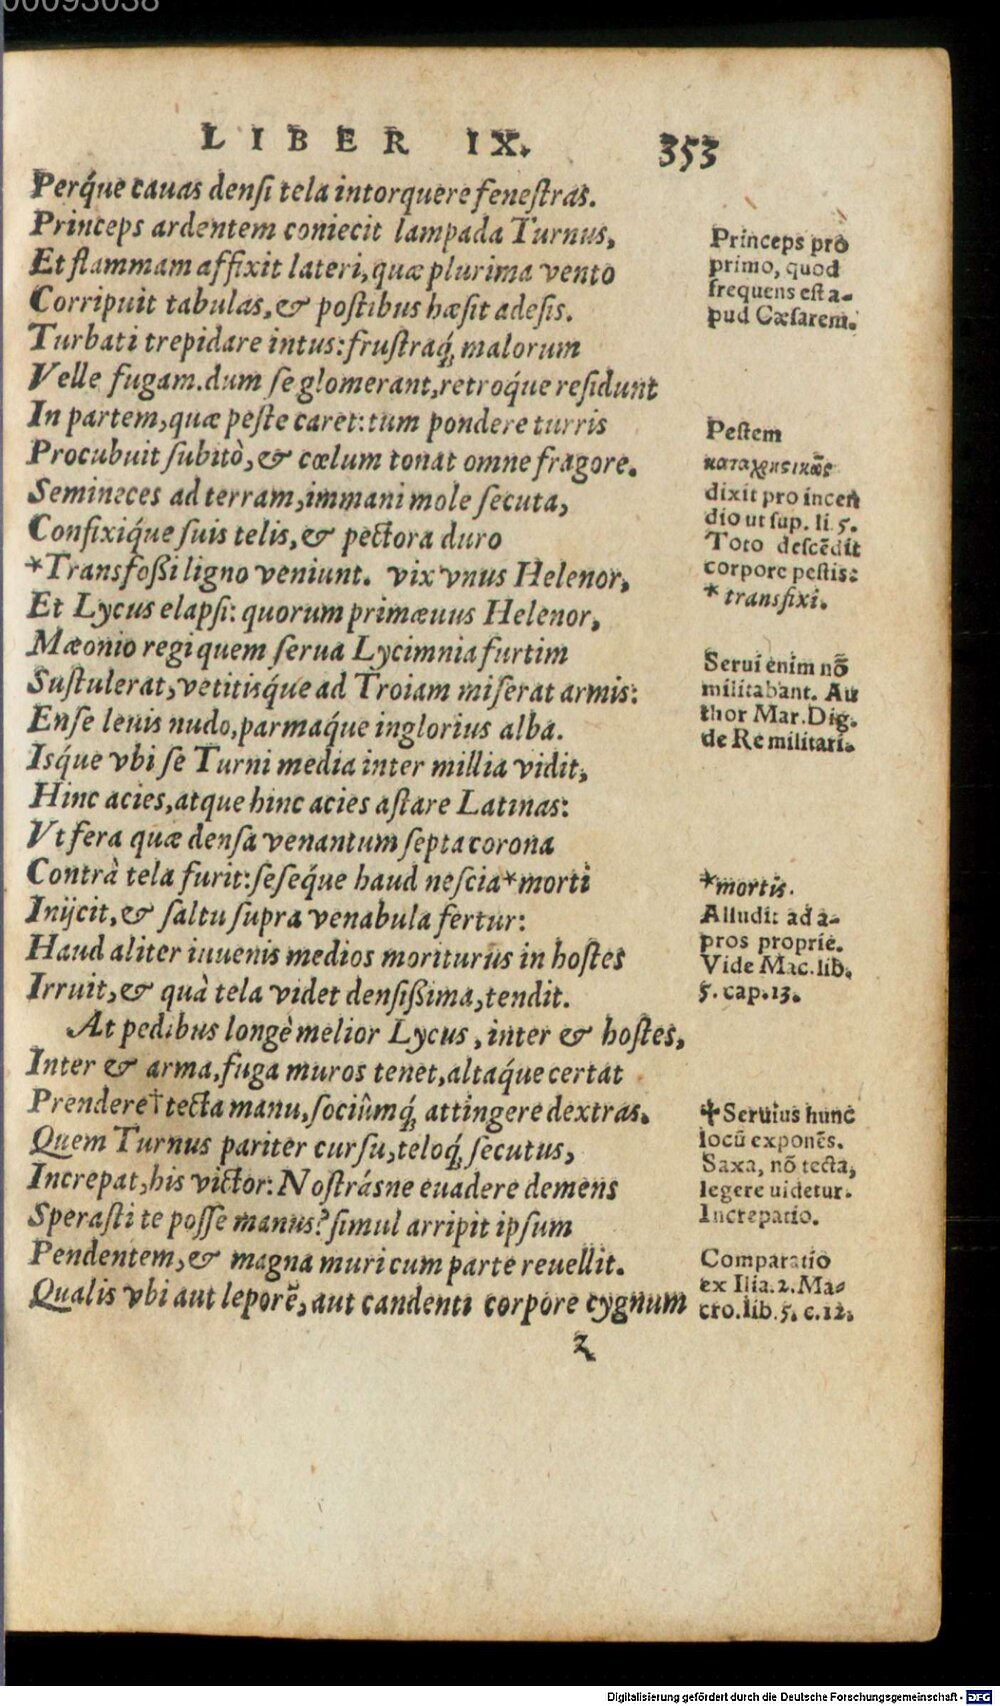 00093038
LIBER IX. 353
Perq́ue cauas densi tela intorquere fenestras.
Princeps ardentem coniecit lampada Turnus,
Et flammam affixit lateri, quæ plurima vento
Corripuit tabulas, & postibus hæsit adesis.
Turbati trepidare intus: frustraq́; malorum
Velle fugam. dum se glomerant, retroq́ue residunt
In partem, quæ peste caret: tum pondere turris
Procubuit subitò, & cœlum tonat omne fragore.
Semineces ad terram, immani mole secuta,
Confixiq́ue suis telis, & pectora duro
*Transfoßi ligno veniunt. vix vnus Helenor,
Et Lycus elapsi: quorum primæuus Helenor,
Mæonio regi quem serua Lycimnia furtim
Sustulerat, vetitisq́ue ad Troiam miserat armis:
Ense leuis nudo, parmaq́ue inglorius alba.
Isq́ue vbi se Turni media inter millia vidit,
Hinc acies, atque hinc acies astare Latinas:
Vt fera quæ densa venantum septa corona
Contrà tela furit: seseq́ue haud nescia *morti
Inijcit, & saltu supra venabula fertur:
Haud aliter iuuenis medios moriturus in hostes
Irruit, & quà tela videt densißima, tendit.
At pedibus longè melior Lycus, inter & hostes,
Inter & arma, fuga muros tenet, altaq́ue certat
Prendere † tecta manu, sociûmq́; attingere dextras.
Quem Turnus pariter cursu, teloq́; secutus,
Increpat, his victor: Nostrásne euadere demens
Sperasti te posse manus? simul arripit ipsum
Pendentem, & magna muri cum parte reuellit.
Qualis vbi aut leporē, aut candenti corpore cygnum
z
Princeps pro
primo, quod
frequens est a-
pud Cæsarem.
Pestem
καταχρηστικῶς
dixit pro incen
dio ut sup. li 5.
Toto descēdit
corpore pestis:
* transfixi.
Serui enim nō
militabant. Au
thor Mar. Dig.
de Re militari.
*mortis.
Alludit ad a-
pros proprie.
Vide Mac. lib.
5. cap. 13.
✝Seruius hunc
locū exponēs.
Saxa, nō tecta,
legere uidetur.
Increpatio.
Comparatio
ex Ilia. 2. Ma-
cro. lib. 5. c. 12.
Digitalisierung gefördert durch die Deutsche Forschungsgemeinschaft - DFG